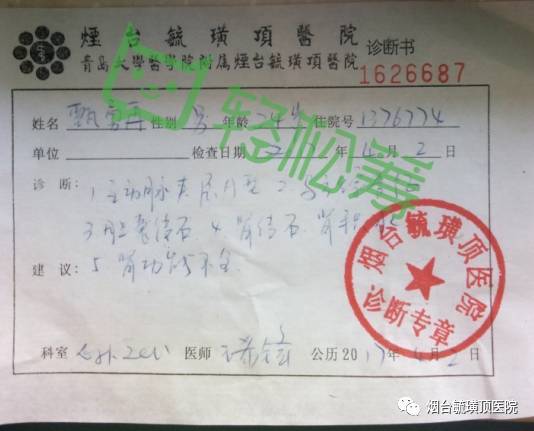 煙台毓璜頂醫院 诊断书
青岛大學醫学院附属煙台毓璜頂醫院
1626687
轻松筹
姓名 性别 男 年龄 住院号 1376774
单位 检查日期 年 4 月 2 日
诊 断: 1 主动脉夹层A型 2
3 胆囊结石 4 肾结石 肾积
建 议: 5 肾功能不全
烟台毓璜顶医院
诊断专章
科室 医师 公历2017年4月2日
烟台毓璜顶医院